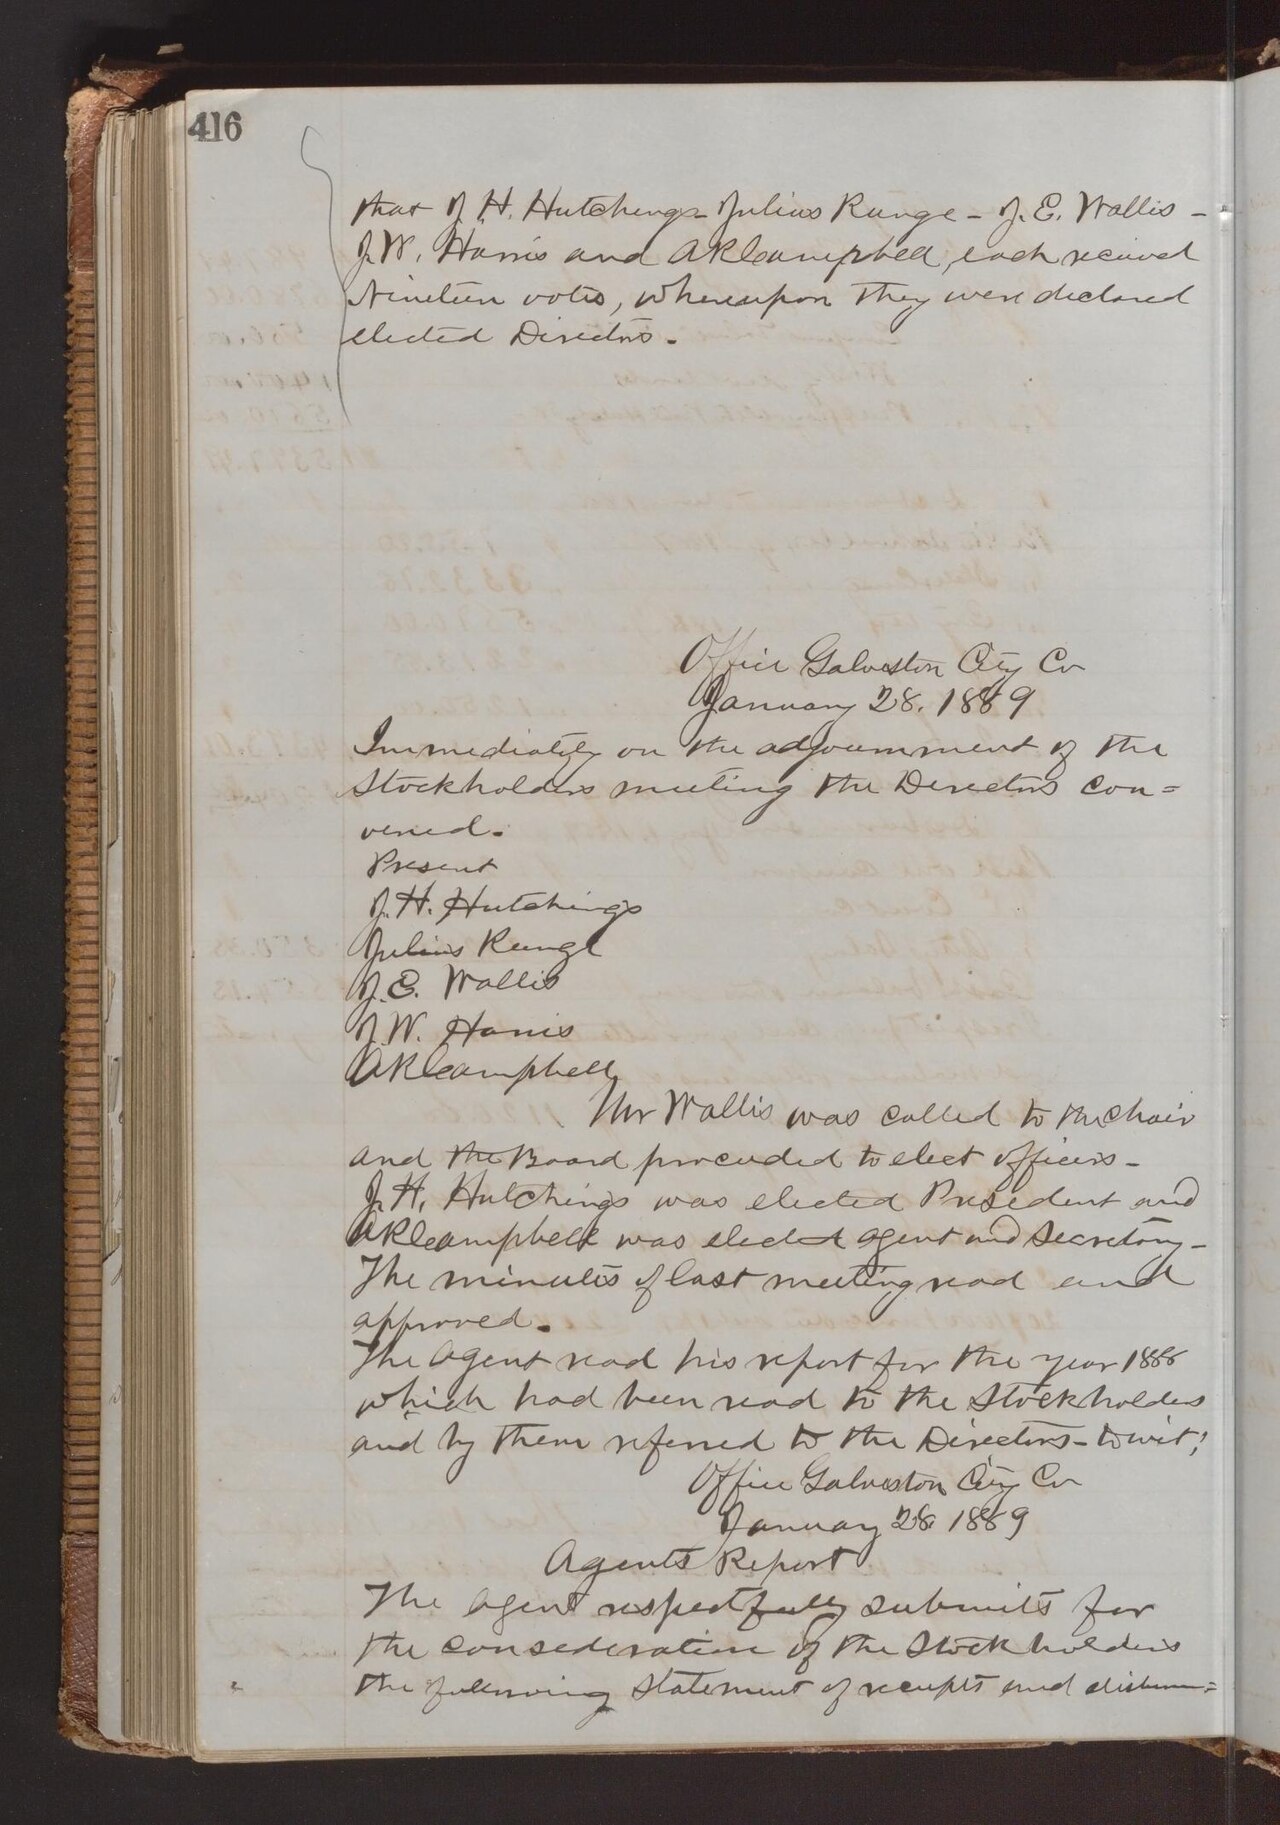 416
that J. H. Hutchings - Julius Runge - J. E. Wallis -
J. W. Harris and A R Campbell, each recieved
Nineteen votes, whereupon they were declared
elected Directors.
Office Galveston City Co
January 28. 1889
Immediately on the adjournment of the
Stockholders meeting the Directors con=
vened.
Present
J. H. Hutchings
Julius Runge
J. E. Wallis
J. W. Harris
A R Campbell
Mr Wallis was called to the chair
and the Board proceeded to elect officers -
J. H. Hutchings was elected President and
A R Campbell was elected agent and Secretary -
The minutes of last meeting read and
approved.
The Agent read his report for the year 1888
which had been read to the Stockholders
and by them referred to the Directors - towit;
Office Galveston City Co
January 28 1889
Agents Report
The Agent respectfully submits for
the consederation of the Stock holders
the following Statement of receipts and disburs=